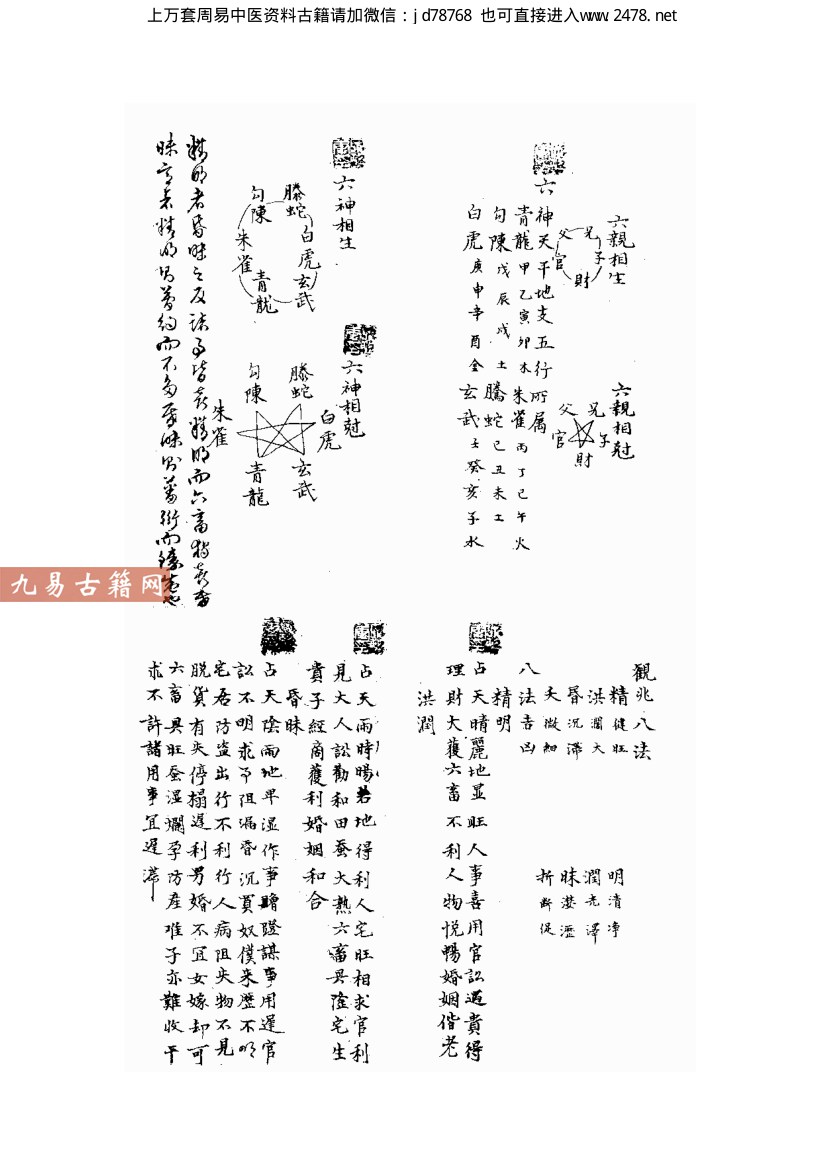 上万套周易中医资料古籍请加微信：jd78768 也可直接进入www.2478.net
六親相生
兄
子
財
官
父
六親相尅
兄
子
財
官
父
六神天干地支五行所属
青龍甲乙寅卯木朱雀丙丁巳午火
勾陳戊辰戌土騰蛇己丑未土
白虎庚申辛酉金玄武壬癸亥子水
六神相生
螣蛇
白虎
玄武
青龍
朱雀
勾陳
六神相尅
螣蛇
白虎
玄武
青龍
朱雀
勾陳
精明者昏昧之反諸事皆喜精明而六畜獨喜昏
昧言者精明則而不昏昧則蕃衍而
九易古籍网
觀兆八法
精健旺
明清净
洪濶大
潤光澤
昏沉滯
昧
夭微細
折斷促
八法吉凶
精明
占天晴麗地显旺人事喜用官訟遇貴得
理財大獲六畜不利人物悦暢婚姻偕老
洪潤
占天雨時暘若地得利人宅旺相求官利
見大人訟勸和田蚕大熟六畜興陰宅生
貴子經商獲利婚姻和合
昏昧
占天陰雨地卑湿作事謀事用遲官
訟不明求阻漏昏沉買奴僕来歷不明
宅居防盗出行不利行人病阻失物不見
脱貨有失停榻遲利男婚不宜女嫁却可
六畜興旺蚕湿爛孕防産难子亦難收干
求不許諸用事宜遲滞